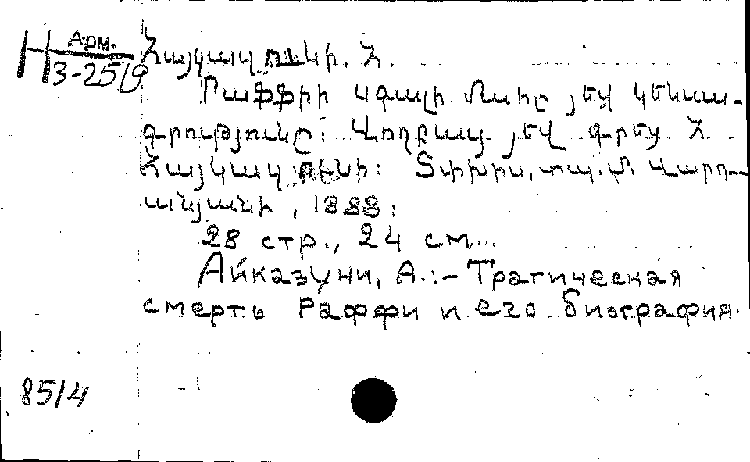 Арм.
Н 3-2519
Հայկազունի. Հ.
Րաֆֆիի մահը յեվ կենսա-
գրությունը: յեվ գրեց Հ
Հայկազունի: Տփխիս, տպ. Մ Վարդ-
անյանի, 1888:
28 стр., 24 см..
Айказуни, А.:- Трагическая
смерть Раффи и его биография.
85/4